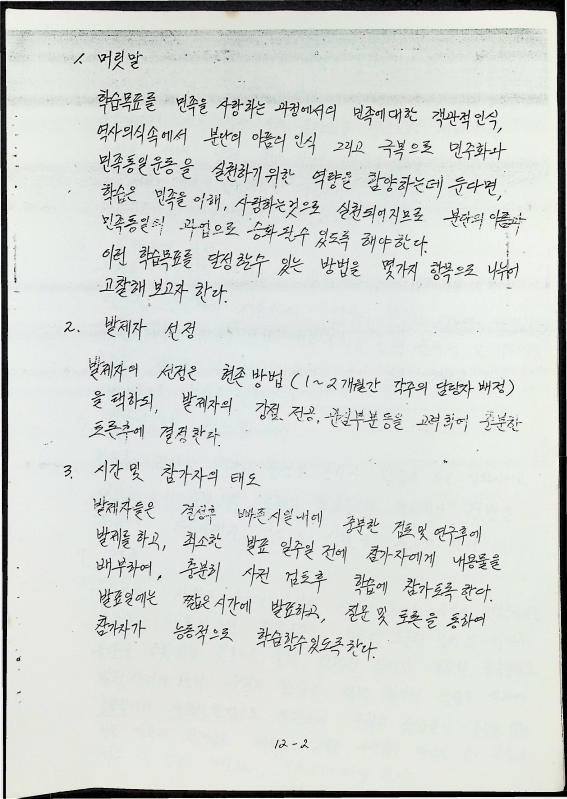 1. 머릿말
학습목표를 민족을 사랑하는 과정에서의 민족에 대한 객관적 인식,
역사의식속에서 분단의 아픔의 인식 그리고 극복으로 민주화와
민족통일운동을 실천하기 위한 역량을 함양하는데 둔다면,
학습은 민족을 이해, 사랑하는것으로 실천되어지므로 분단의 아픔과
민족통일의 과업으로 승화될수 있도록 해야한다.
이런 학습목표를 달성할수 있는 방법을 몇가지 항목으로 나누어
고찰해 보고자 한다.
2. 발제자 선정
발제자의 선정은 현존방법 (1~2개월간 각주의 담당자 배정)
을 택하되, 발제자의 강점, 전공, 등을 고려하여 충분한
토론후에 결정한다.
3. 시간 및 참가자의 태도
발제자들은 결성후 빠른 시일내에 충분한 검토및 연구후에
발제를 하고, 최소한 발표 일주일 전에 참가자에게 내용물을
배부하여, 충분히 사전 검토후 학습에 참가토록 한다.
발표일에는 짧은 시간에 발표하고, 질문 및 토론을 통하여
참가자가 능동적으로 학습할수있도록한다.
12-2